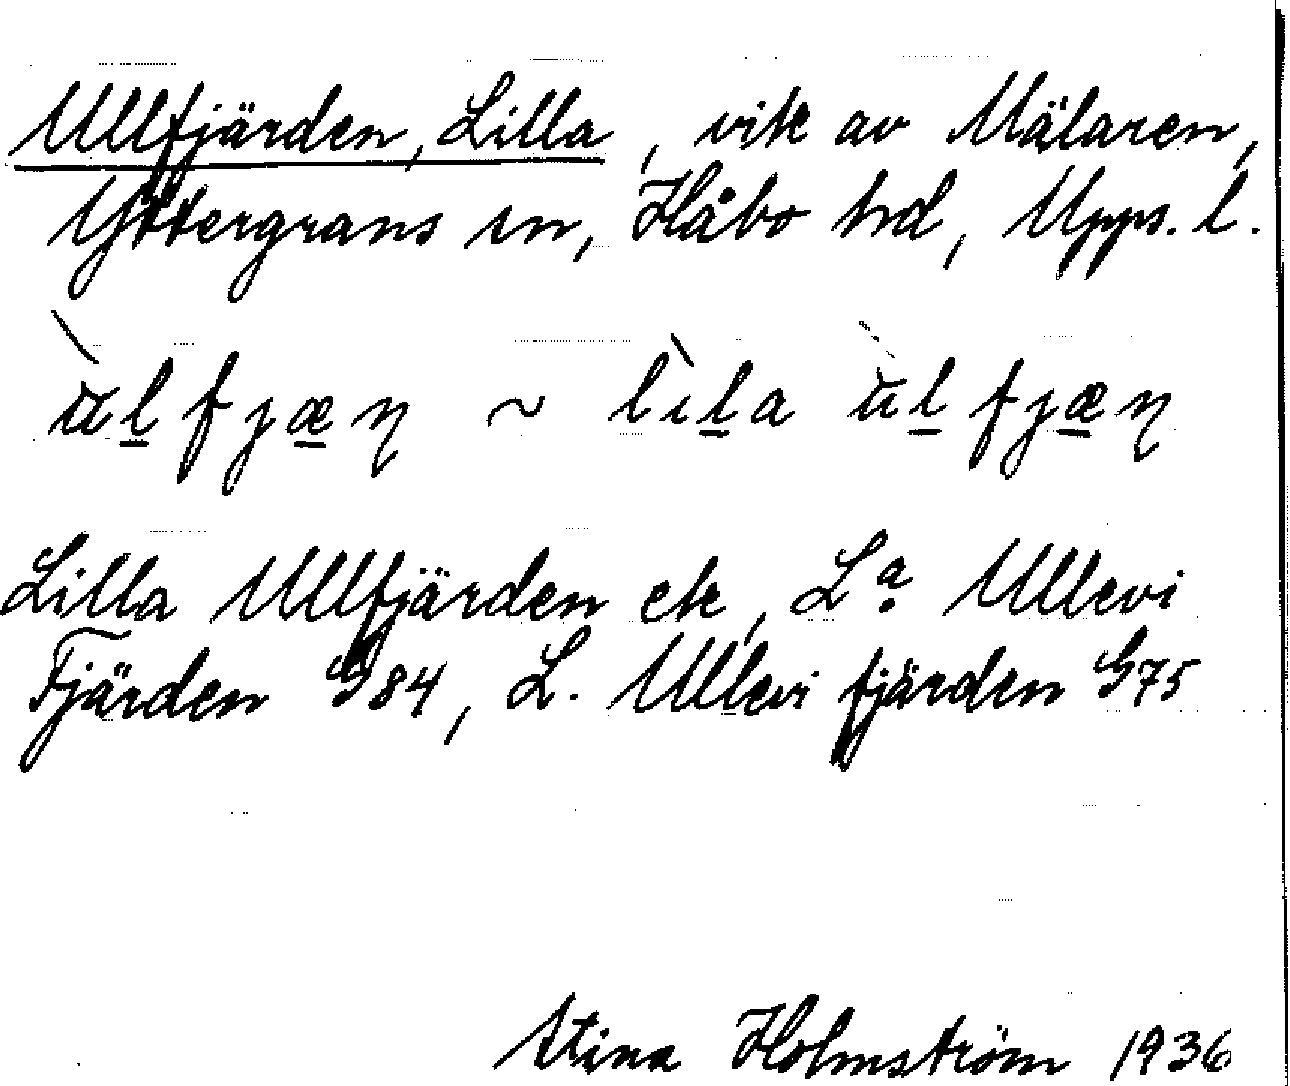 Ullfjärden, Lilla, vik av Mälaren,
Yttergrans sn, Håbo hd, Upps. l.
ùl̲fjæ̲ꞑ ~ lìl̲a ùl̲fjæ̲ꞑ
Lilla Ullfjärden ek, Lª. Ullevi
Fjärden G84, L. Ullevi fjärden G75
Stina Holmström 1936